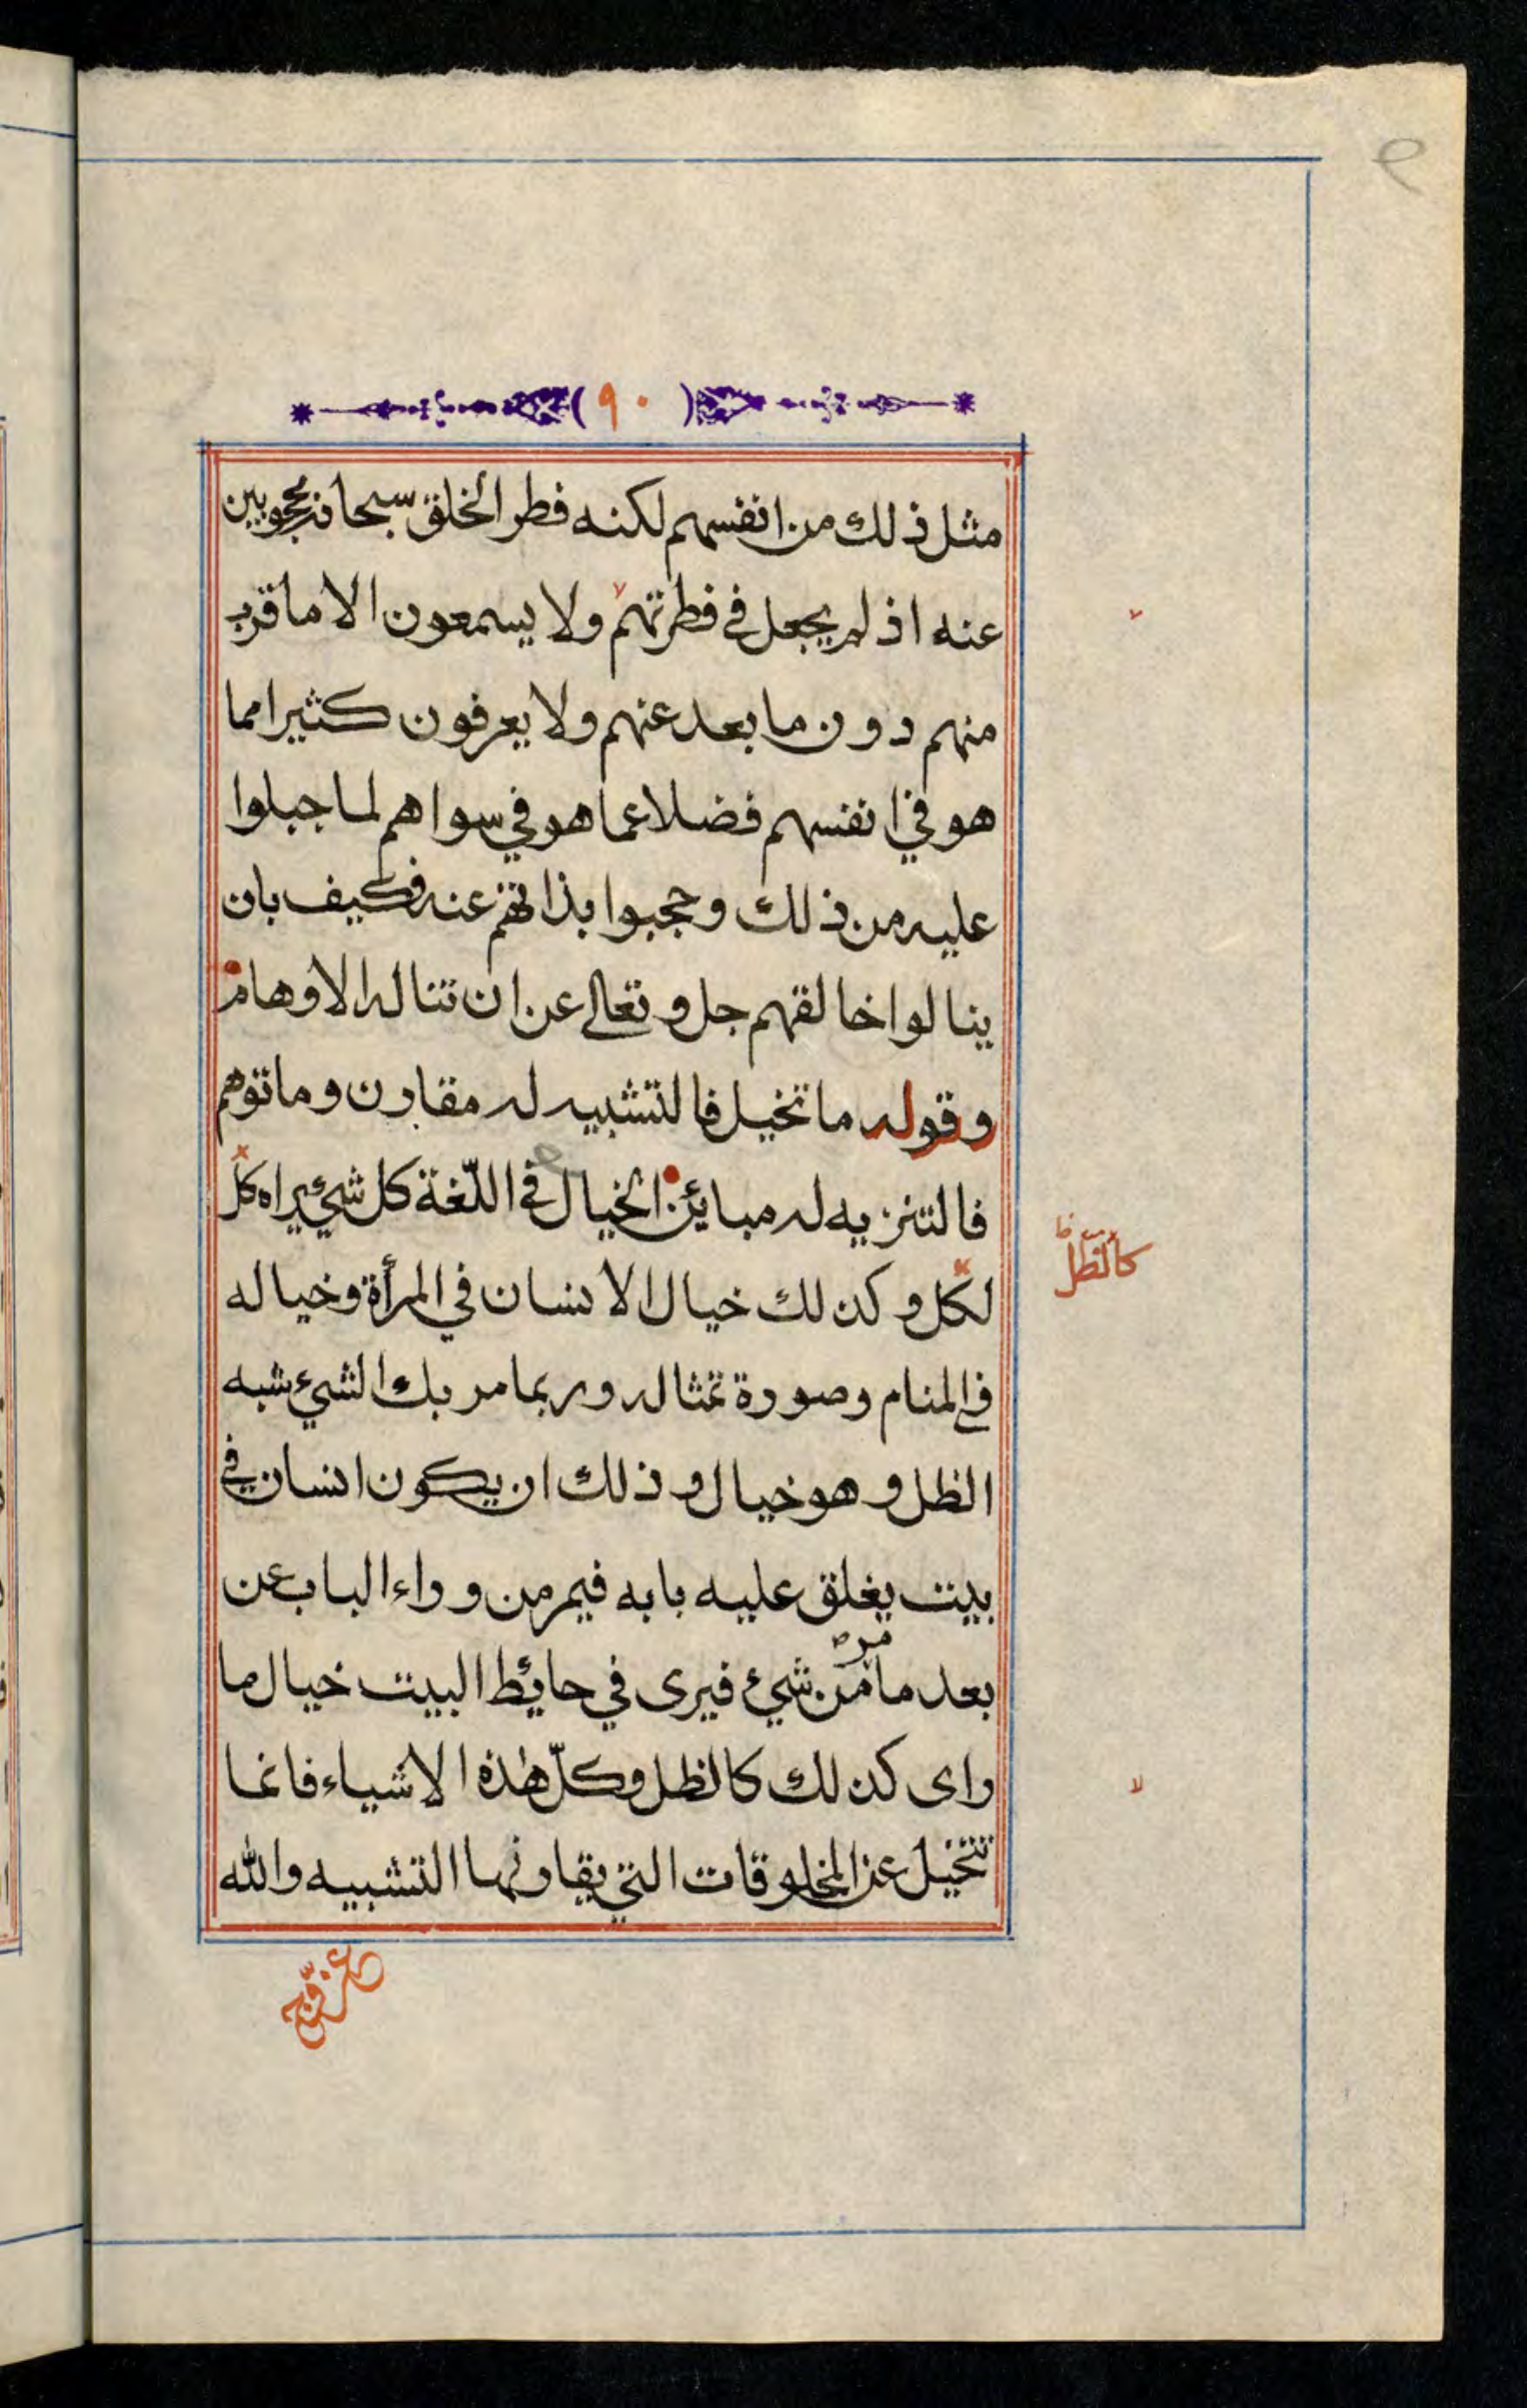 (٩٠)
مثل ذلك من انفسهم لكنه فطر الخلق سبحانه محجوبين
عنه اذ لم يجعل في فطرتهم ولا يسمعون الا ما قرب
منهم دون ما بعد عنهم ولا يعرفون كثيرا مما
هو في انفسهم فضلا عما هو في سواهم لما جبلوا
عليه من ذلك وحجبوا بذاتهم عنه فكيف بان
ينالوا خالقهم جل وتعالى عن ان تناله الاوهام
وقوله ما تخيل فالتشبيه له مقارن وما توهم
فالتنزيه له مبائن الخيال في اللّغة كل شيئ يراه كلّ
لكلّ وكذلك خيال الانسان في المرأة وخياله
في المنام وصورة تمثاله وربما مر بك الشيئ شبه
الظل وهو خيال وذلك ان يكون انسان في
بيت يغلق عليه بابه فيمر من وراء الباب عن
بعد ما مر من شيئ فيرى في حائط البيت خيال ما
راى كذلك كالظل وكلّ هٰذه الاشياء فانما
تتخيل عن المخلوقات التي يقارنها التشبيه والله
كالظّلّ
لا
عز وجل